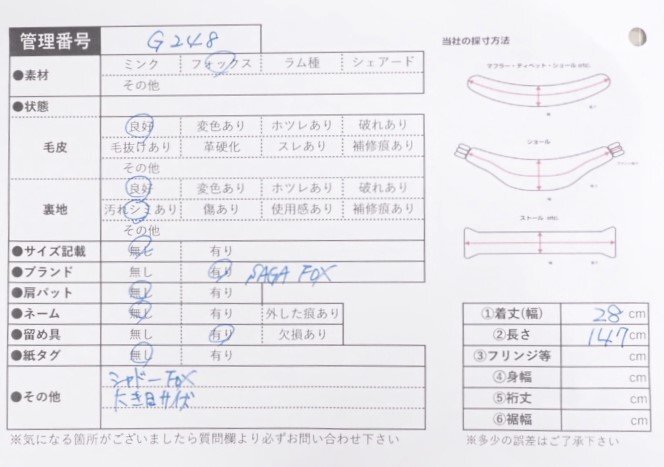 管理番号 G248
●素材 ミンク フォックス ラム種 シェアード
その他
●状態
毛皮 良好 変色あり ホツレあり 破れあり
毛抜けあり 革硬化 スレあり 補修痕あり
その他
裏地 良好 変色あり ホツレあり 破れあり
汚れシミあり 傷あり 使用感あり 補修痕あり
その他
●サイズ記載 無し 有り
●ブランド 無し 有り SAGA FOX
●肩パット 無し 有り
●ネーム 無し 有り 外した痕あり
●留め具 無し 有り 欠損あり
●紙タグ 無し 有り
●その他 シャドーFOX
大き目サイズ
※気になる箇所がございましたら質問欄より必ずお問い合わせ下さい
当社の採寸方法
マフラー・ティペット・ショール etc.
ショール
ストール etc.
①着丈(幅) 28 cm
②長さ 147 cm
③フリンジ等 cm
④身幅 cm
⑤裄丈 cm
⑥裾幅 cm
※多少の誤差はご了承下さい